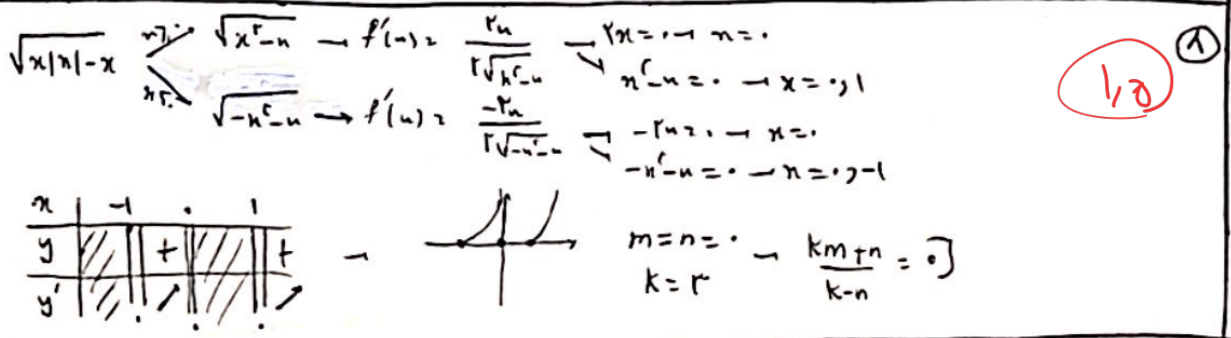 √x|x|-x x≥۰ √x²-x → f'(x) = ۲x / ۲√x²-x → ۲x=۰ → x=۰
x²-x=۰ → x=۰,۱
x≤۰ √-x²-x → f'(x) = -۲x / ۲√-x²-x → -۲x=۰ → x=۰
-x²-x=۰ → x=۰,-۱
۱
۱,۵
x -۱ ۰ ۱
y + +
y' ۰ ۰ ۰
m=n=۰
k=۳
→ km+n / k-n = ۰